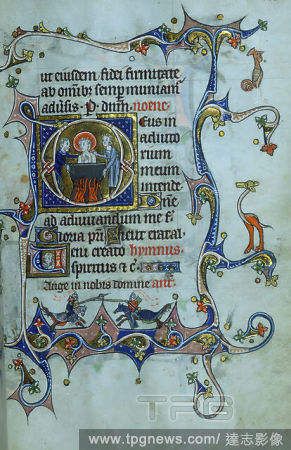 ut eiusdem fidei firmitate
ab omīb; semp muniam̄
aduſis. P. dnum. noene.
Deus in
adiuto
rium
meum
intende
Dn̄e
ad adiuuandum me f
Gloria pr̄i Sicut erat. al
Ueni creato hymnus
spiritus & c.
Ange in nobis domine ant.
TPG
www.tpgnews.com / 達志影像